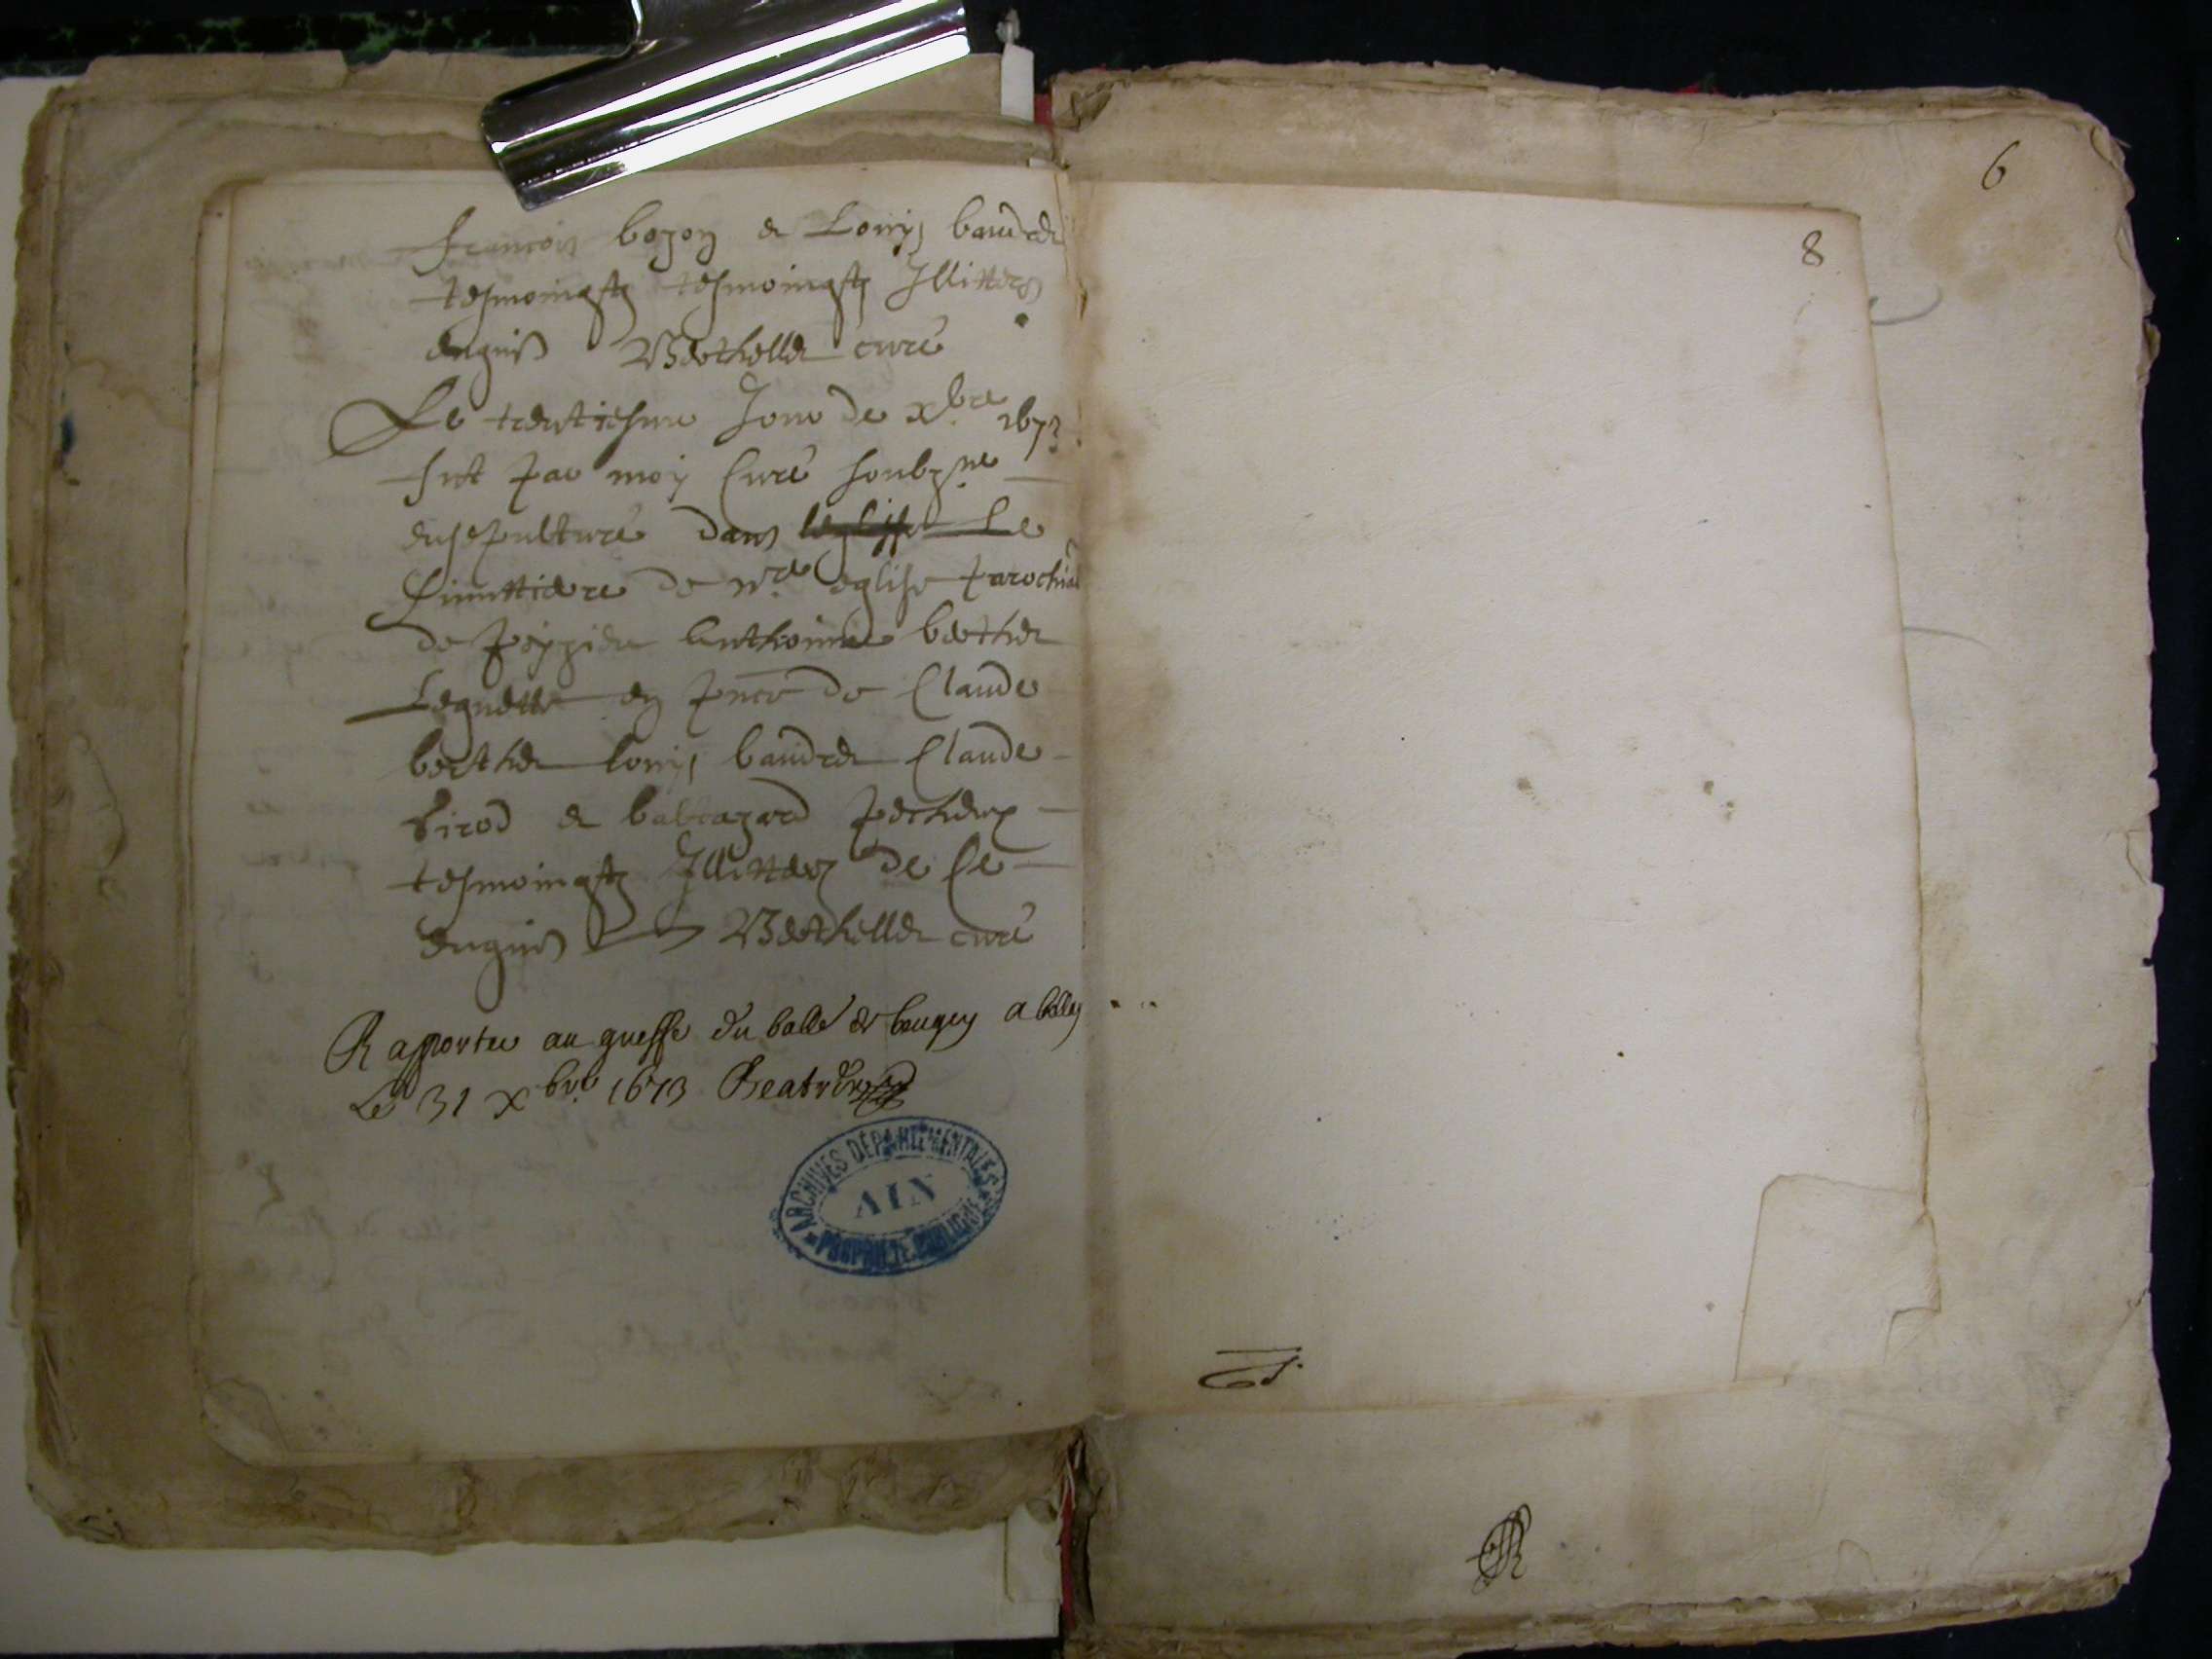 francois bozon et Louys baudet
tesmoingstz tesmoingstz Illitterz
enquis Berthellet curé
Le trentiesme Jour de xbre 1673
fut par moy Curé soubzne
ensepulturé dans leglisse Le
Cimittiere de nre eglise parochial
de peyzieu Anthoinne berthet
Lequelle en pnce de Claude
berthet Louys baudet Claude
Girod et baltazard
tesmoingstz Illitterz de Ce
enquis Berthellet curé
Rapportee au greffe du balle de beugey a belley
Le 31 xbre 1673
ARCHIVES DÉPARTEMENTALES
AIN
PROPRIÉTÉ PUBLIQUE
6
8